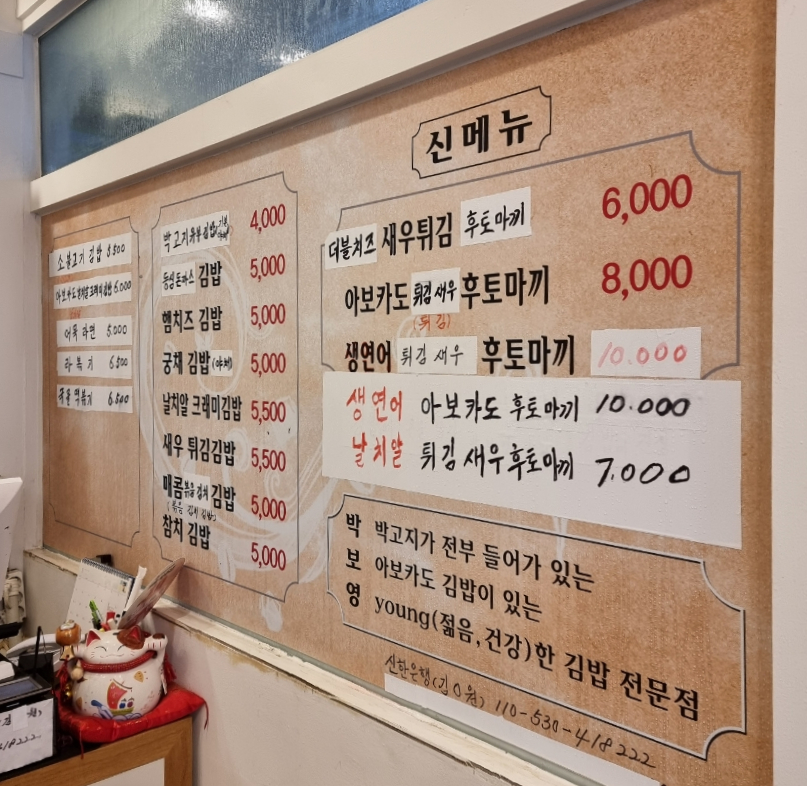 소불고기 김밥 5,500
아보카도 날치알 크레미김밥 6.000
어묵 라면 5.000
라 볶 기 6,500
떡볶기 6,500
박고지유부김밥 4,000
등심돈까스 김밥 5,000
햄치즈 김밥 5,000
궁채 김밥(야채) 5,000
날치알 크래미김밥 5,500
새우 튀김김밥 5,500
매콤볶음김치 김밥 5,000
(볶음 김치 김밥)
참치 김밥 5,000
신메뉴
더블치즈 새우튀김 후토마끼 6,000
아보카도 튀김 새우 후토마끼 8,000
(튀김)
생연어 튀김 새우 후토마끼 10.000
생연어 아보카도 후토마끼 10.000
날치알 튀김 새우 후토마끼 7.000
박 박고지가 전부 들어가 있는
보 아보카도 김밥이 있는
영 young(젊음,건강)한 김밥 전문점
신한은행(김O원) 110-530-418222
418222